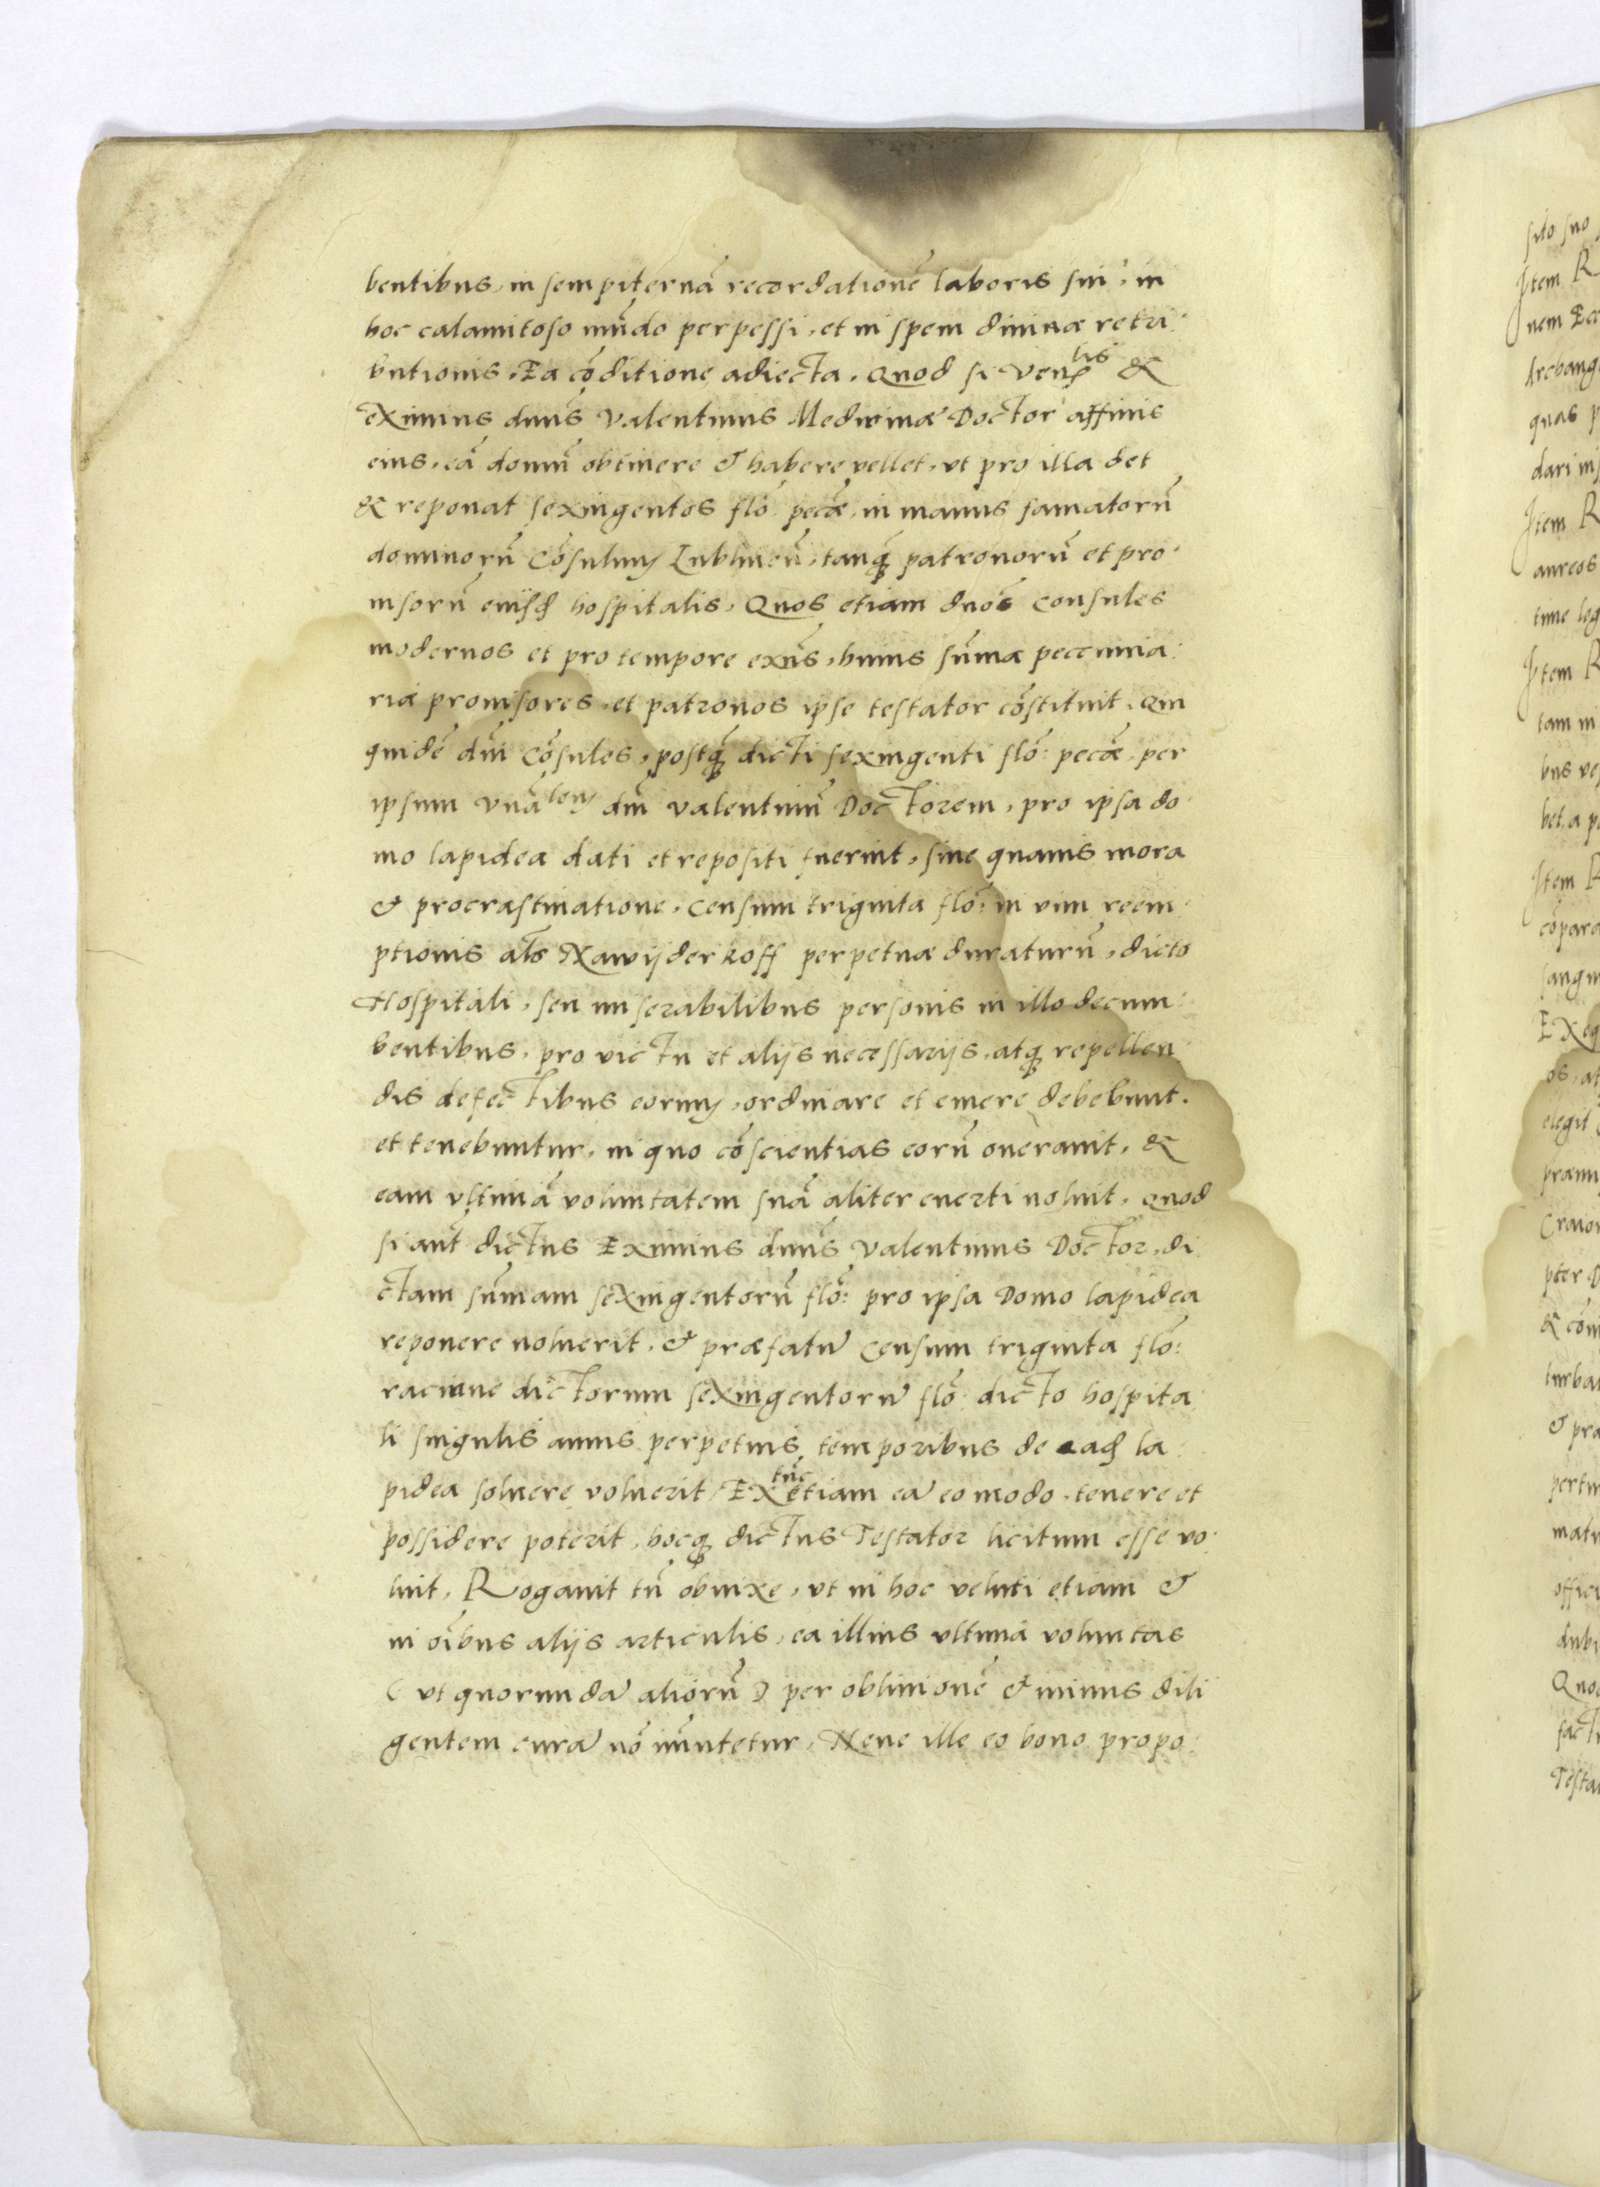 bentibus, in sempiternã recordationẽ laboris sui, in
hoc calamitoso mũdo perpessi, et in spem diuinæ retri
butionis. Ea cõditione adiecta. Quod si Ven lis &
eximius dnũs Valentinus Medicinæ Doctor affinis
eius, eã domũ obtinere & habere vellet, vt pro illa det
& reponat sexingentos flõ: pecæ, in manus famatorũ
dominorũ Cõsulum Lublineñ, tanq̃ patronorũ et pro
uisorũ eiusd hospitalis. Quos etiam dnõs Consules
modernos et pro tempore exñs, huius sũmæ peccunia
riæ prouisores, et patronos ipse testator cõstituit. Qui
quidẽ dñi Cõsules, postq̃ dicti sexingenti flõ: pecæ, per
ipsum Vnã lem dñ Valentinũ Doctorem, pro ipsa do
mo lapidea dati et repositi fuerint, sine quauis mora
& procrastinatione, Censum triginta flõ: in vim reem
ptionis als Nawijderkoff perpetuæ duraturũ, dicto
Hospitali, seu miserabilibus personis in illo decum
bentibus, pro victu et alijs necessarijs, atq repellen
dis defectibus eorum, ordinare et emere debebunt.
et tenebuntur, in quo cõscientias eorũ onerauit, &
eam vltimã voluntatem suã aliter euerti noluit. Quod
si aut dictus Eximius dnũs Valentinus Doctor, di
ctam sũmam sexingentorũ flõ: pro ipsa Domo lapidea
reponere noluerit, & præfatũ Censum triginta flõ:
racione dictorum sexingentorũ flõ: dicto hospita
li singulis annis perpetuis temporibus de ead la
pidea soluere voluerit, Ex tũc etiam eã eo modo, tenere et
possidere poterit, hocq dictus Testator licitum esse vo
luit. Rogauit tñ obnixe, vt in hoc veluti etiam &
in oĩbus alijs articulis, ea illius vltima voluntas
( vt quorundã aliorũ ) per obliuionẽ & minus dili
gentem curã nõ imutetur, Neue ille eo bono propo
sito suo
Item R
nem Ecc
Archang
quas p
dari ins
Item R
aureos
tunc leg
Item R
tam in
bus ves
bet a p
Item R
cõpara
sangui
Exeq
os, at
elegit
præmi
pter D
& cõm
turbat
& præ
pertur
offici
dubi
Quod
facti
Testa